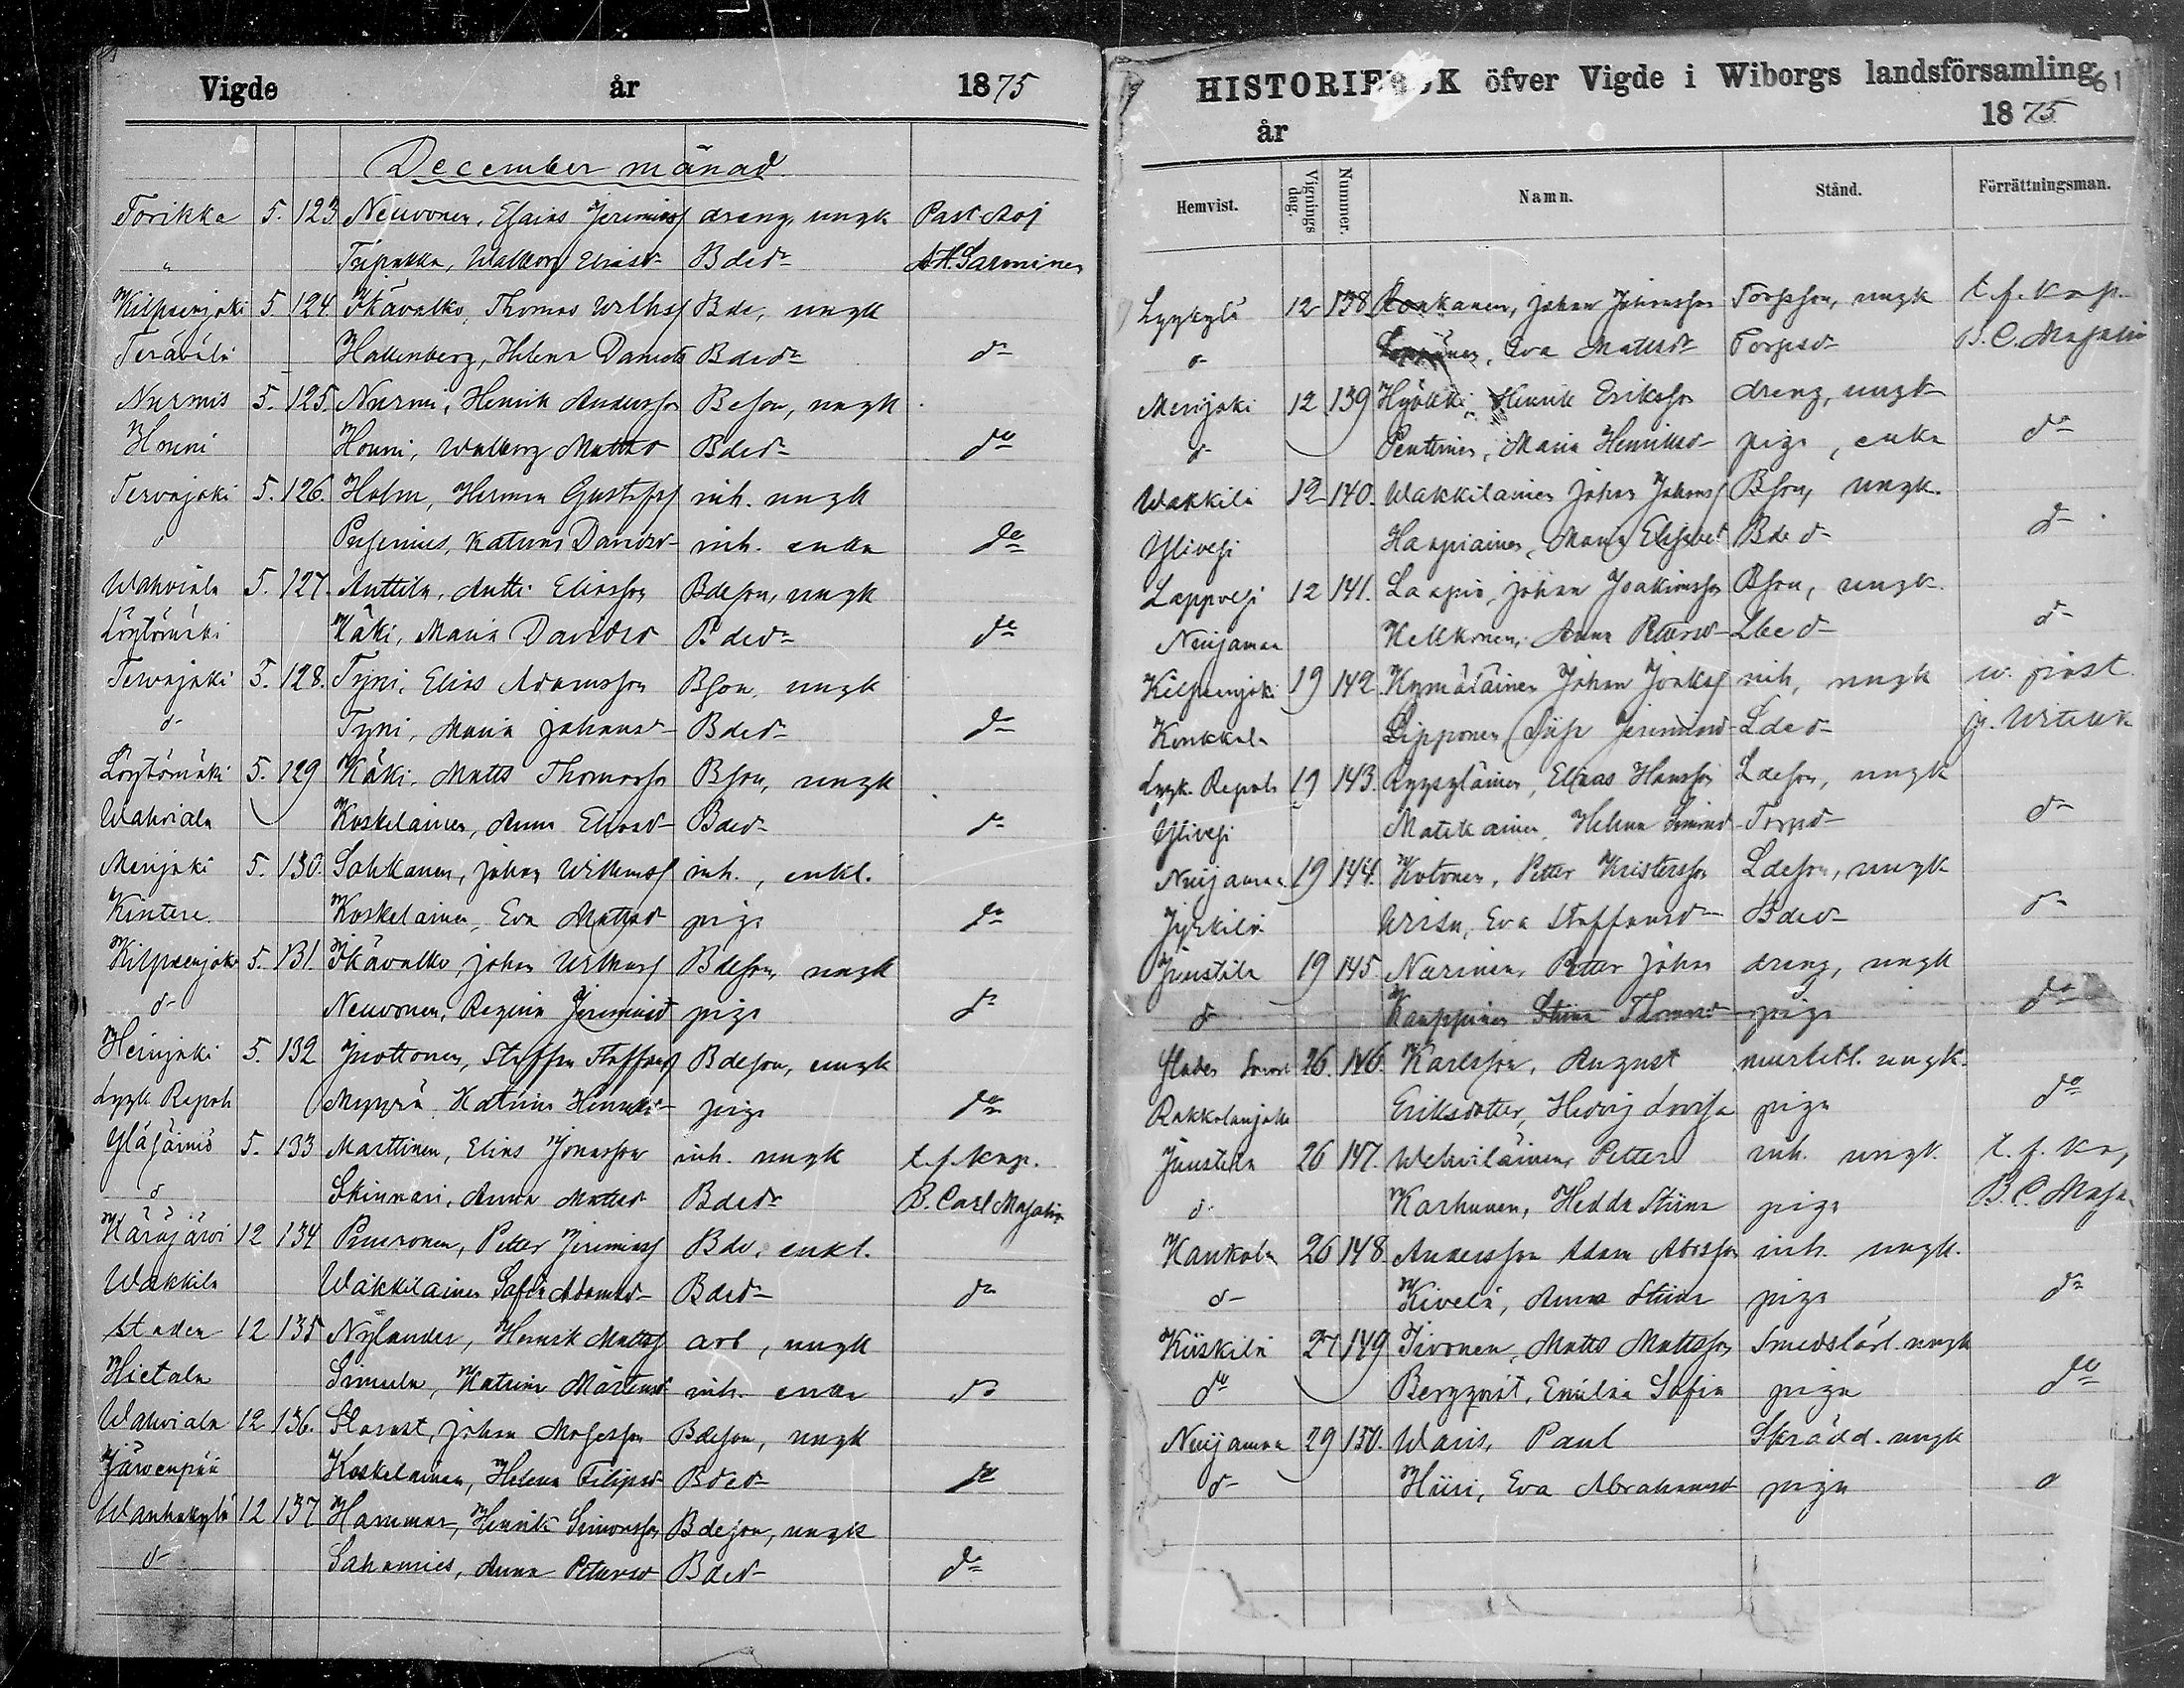 Vigde år 1875
December månad
Torikka 5. 123. Neuvonen, Esaias dreng, ungk Past. Adj
" Walborg Eliasd Bded A.H. Sarminen
Kilpeenjoki 5. 124. Ikävalko, Thomas Bde, ungk
Terävälä Hallenberg, Helena Bded do
Nurmis 5. 125. Nurmi, Henrik Andersson Beson, ungk
Houni Houni, Walborg Mattsd Bded do
Tervajoki 5. 126. Holm, Herman inh. ungk
Katrina Davidsd inh. enka do
Wahviala 5. 127. Anttila, Antti Eliasson Bdeson, ungk
Löytömäki Käki, Maria Davidsd Bded do
Tervajoki 5. 128. Tyni, Elias Adamsson Bson, ungk
d- Tyni, Maria Johansd Bded d-
Löytömäki 5. 129 Käki, Matts Thomasson Bson, ungk
Wahviala Koskelainen, Anna Eliasd Bded d-
Menjoki 5. 130. Sahkanen, Johan inh., enkl.
Kintere Koskelainen, Eva Mattsd piga do
Kilpeenjoki 5. 131. Ikävalko, Johan Bdeson, ungk
d- Neuvonen, Regina piga d-
Heinjoki 5. 132 Juottonen, Staffan Bdeson, ungk
Lyyk. Repola Myyrä, Katrina piga do
Yläsäiniö 5. 133 Marttinen, Elias Jonasson inh. ungk t.f. kap.
d Skinnari, Anna Mattsd Bded B. Carl Majalin
Käräjärvi 12 134 Petter Bde, enkl.
Wakkila Wakkilainen Sofia Adamsd Bded do
Staden 12 135 Nylander, Henrik arb, ungk
Hietala Simula, Katrina inh. enka do
Wahviala 12 136. Johan Mosesson Bdeson, ungk
Järvenpää Koskelainen, Helena Filipsd Bded do
Wanhakylä 12 137 Hammar, Henrik Simonsson Bdeson, ungk
d- Sahamies, Anna Petersd Bded do
HISTORIEBOK öfver Vigde i Wiborgs landsförsamling 61
år 1875
Hemvist. Vignings dag. Nummer. Namn. Stånd. Förrättningsman.
Lyykylä 12 138 Johan Johansson Torpson, ungk t.f. kap.
d- Eva Mattsd Torpsd B.C. Majalin
Menjoki 12 139 Hyökki, Henrik Eriksson dreng, ungk
d- Penttinen, Maria Henriksd piga, enka do
Wakkila 12 140. Wakkilainen Johan Bson, ungk.
Ylivesi Haapiainen, Maria Elisabet Bded d-
Lappvesi 12 141. Laapio, Johan Joakimsson Bson, ungk.
Nuijamaa Anna Petersd d-
Kilpeenjoki 19 142 Kymäläinen Johan inh, ungk w. prost
Konkkala Lipponen Lded
Lyyk. Repola 19 143. Elias Hansson Ldeson, ungk
Ylivesi Matikainen, Helena Torpsd do
Nuijamaa 19 144. Kotonen, Petter Kristersson Ldeson, ungk
Jyrkilä Eva Staffansd Bded d-
Juustila 19 145. Nurminen, Petter Johan dreng, ungk
d- Kauppinen Stina Thomasd piga do
26. 146. Karlsson, August ungk.
Rakkolanjoki Eriksdotter, Hedvig Lovisa piga do
Juustila 26 147. Wehviläinen, Petter inh. ungk. t.f. kap
d- Karhunen, Hedda Stina piga B.C. Maja
Kankola 26 148. Andersson Adam inh. ungk.
d- Kivelä, Anna Stina piga do
Kiiskilä 27 149 Tivonen, Matts Mattsson Smedslärl. ungk
do Bergqvist, Emilia Sofia piga do
Nuijamaa 29 150. Waris, Paul Skrädd. ungk
d- Hiiri, Eva Abrahamsd piga d